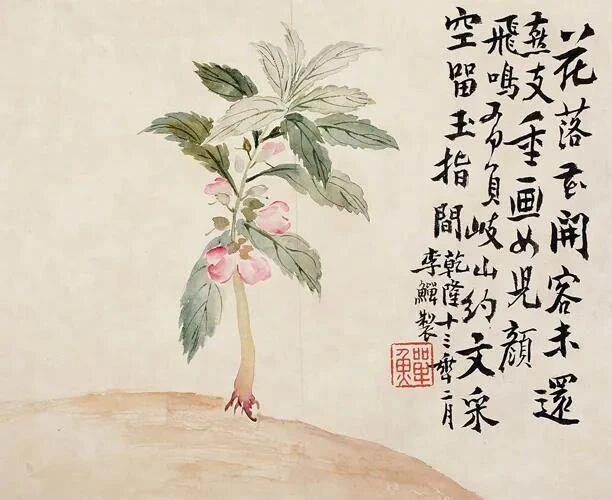 花落花開客未還
燕支重画女兒顔
飛鳴有負岐山約文采
空留玉指間
乾隆十三年二月
李鱓製
鱓